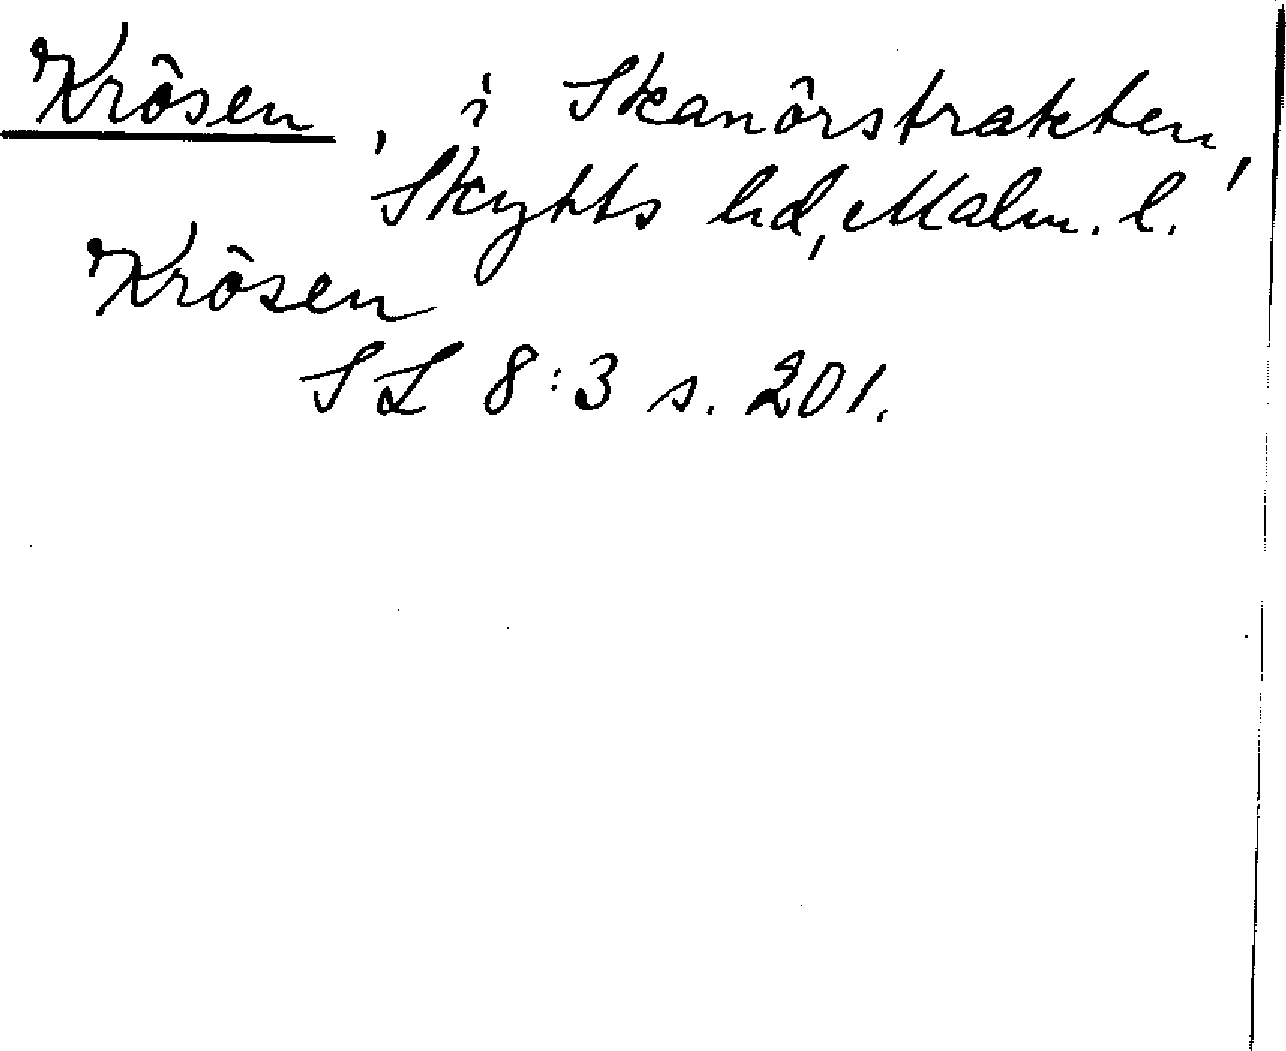 Krösen, i Skanörstrakten,
Skytts hd, Malm. l.
Krösen
SL 8:3 s. 201.